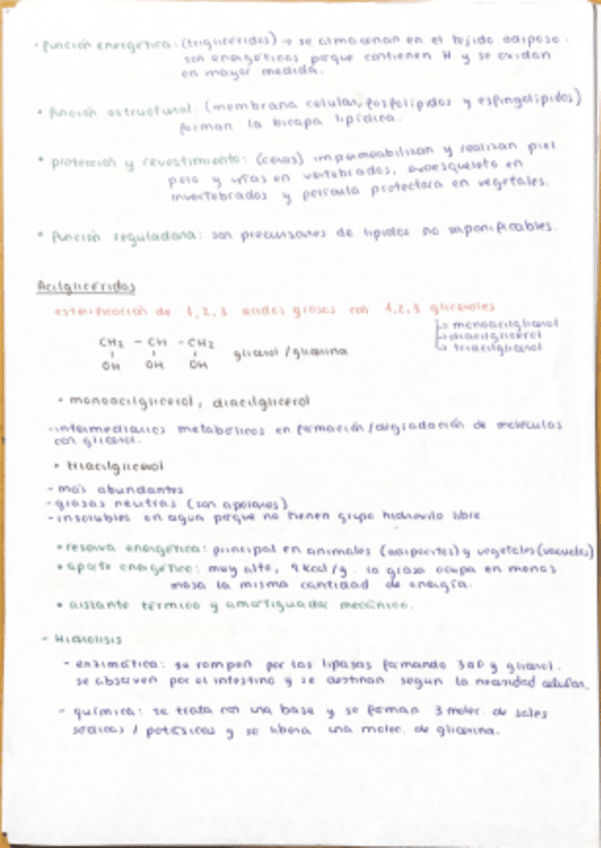 • función energética: (triglicéridos) → se almacenan en el tejido adiposo.
son energéticos porque contienen H y se oxidan
en mayor medida.
• función estructural: (membrana celular, fosfolípidos y esfingolípidos)
forman la bicapa lipídica.
• protección y revestimiento: (ceras) impermeabilizan y realizan piel
pelo y uñas en vertebrados, exoesqueleto en
invertebrados y película protectora en vegetales.
• función reguladora: son precursores de lípidos no saponificables.
Acilglicéridos
esterificación de 1, 2, 3 ácidos grasos con 1, 2, 3 gliceroles
↳ monoacilglicerol
↳ diacilglicerol
↳ triacilglicerol
CH2 - CH - CH2
OH OH OH
glicerol / glicerina
• monoacilglicerol, diacilglicerol
- intermediarios metabólicos en formación/degradación de moléculas
con glicerol.
• triacilglicerol
- más abundantes
- grasas neutras (son apolares)
- insolubles en agua porque no tienen grupo hidroxilo libre.
• reserva energética: principal en animales (adipocitos) y vegetales (vacuolas)
• aporte energético: muy alto, 9 kcal/g. la grasa ocupa en menos
masa la misma cantidad de energía.
• aislante térmico y amortiguador mecánico.
- Hidrólisis
- enzimática: se rompen por las lipasas formando 3 aG y glicerol.
se absorven por el intestino y se destinan según la necesidad celular.
- química: se trata con una base y se forman 3 molec. de sales
sódicas / potásicas y se libera una molec. de glicerina.